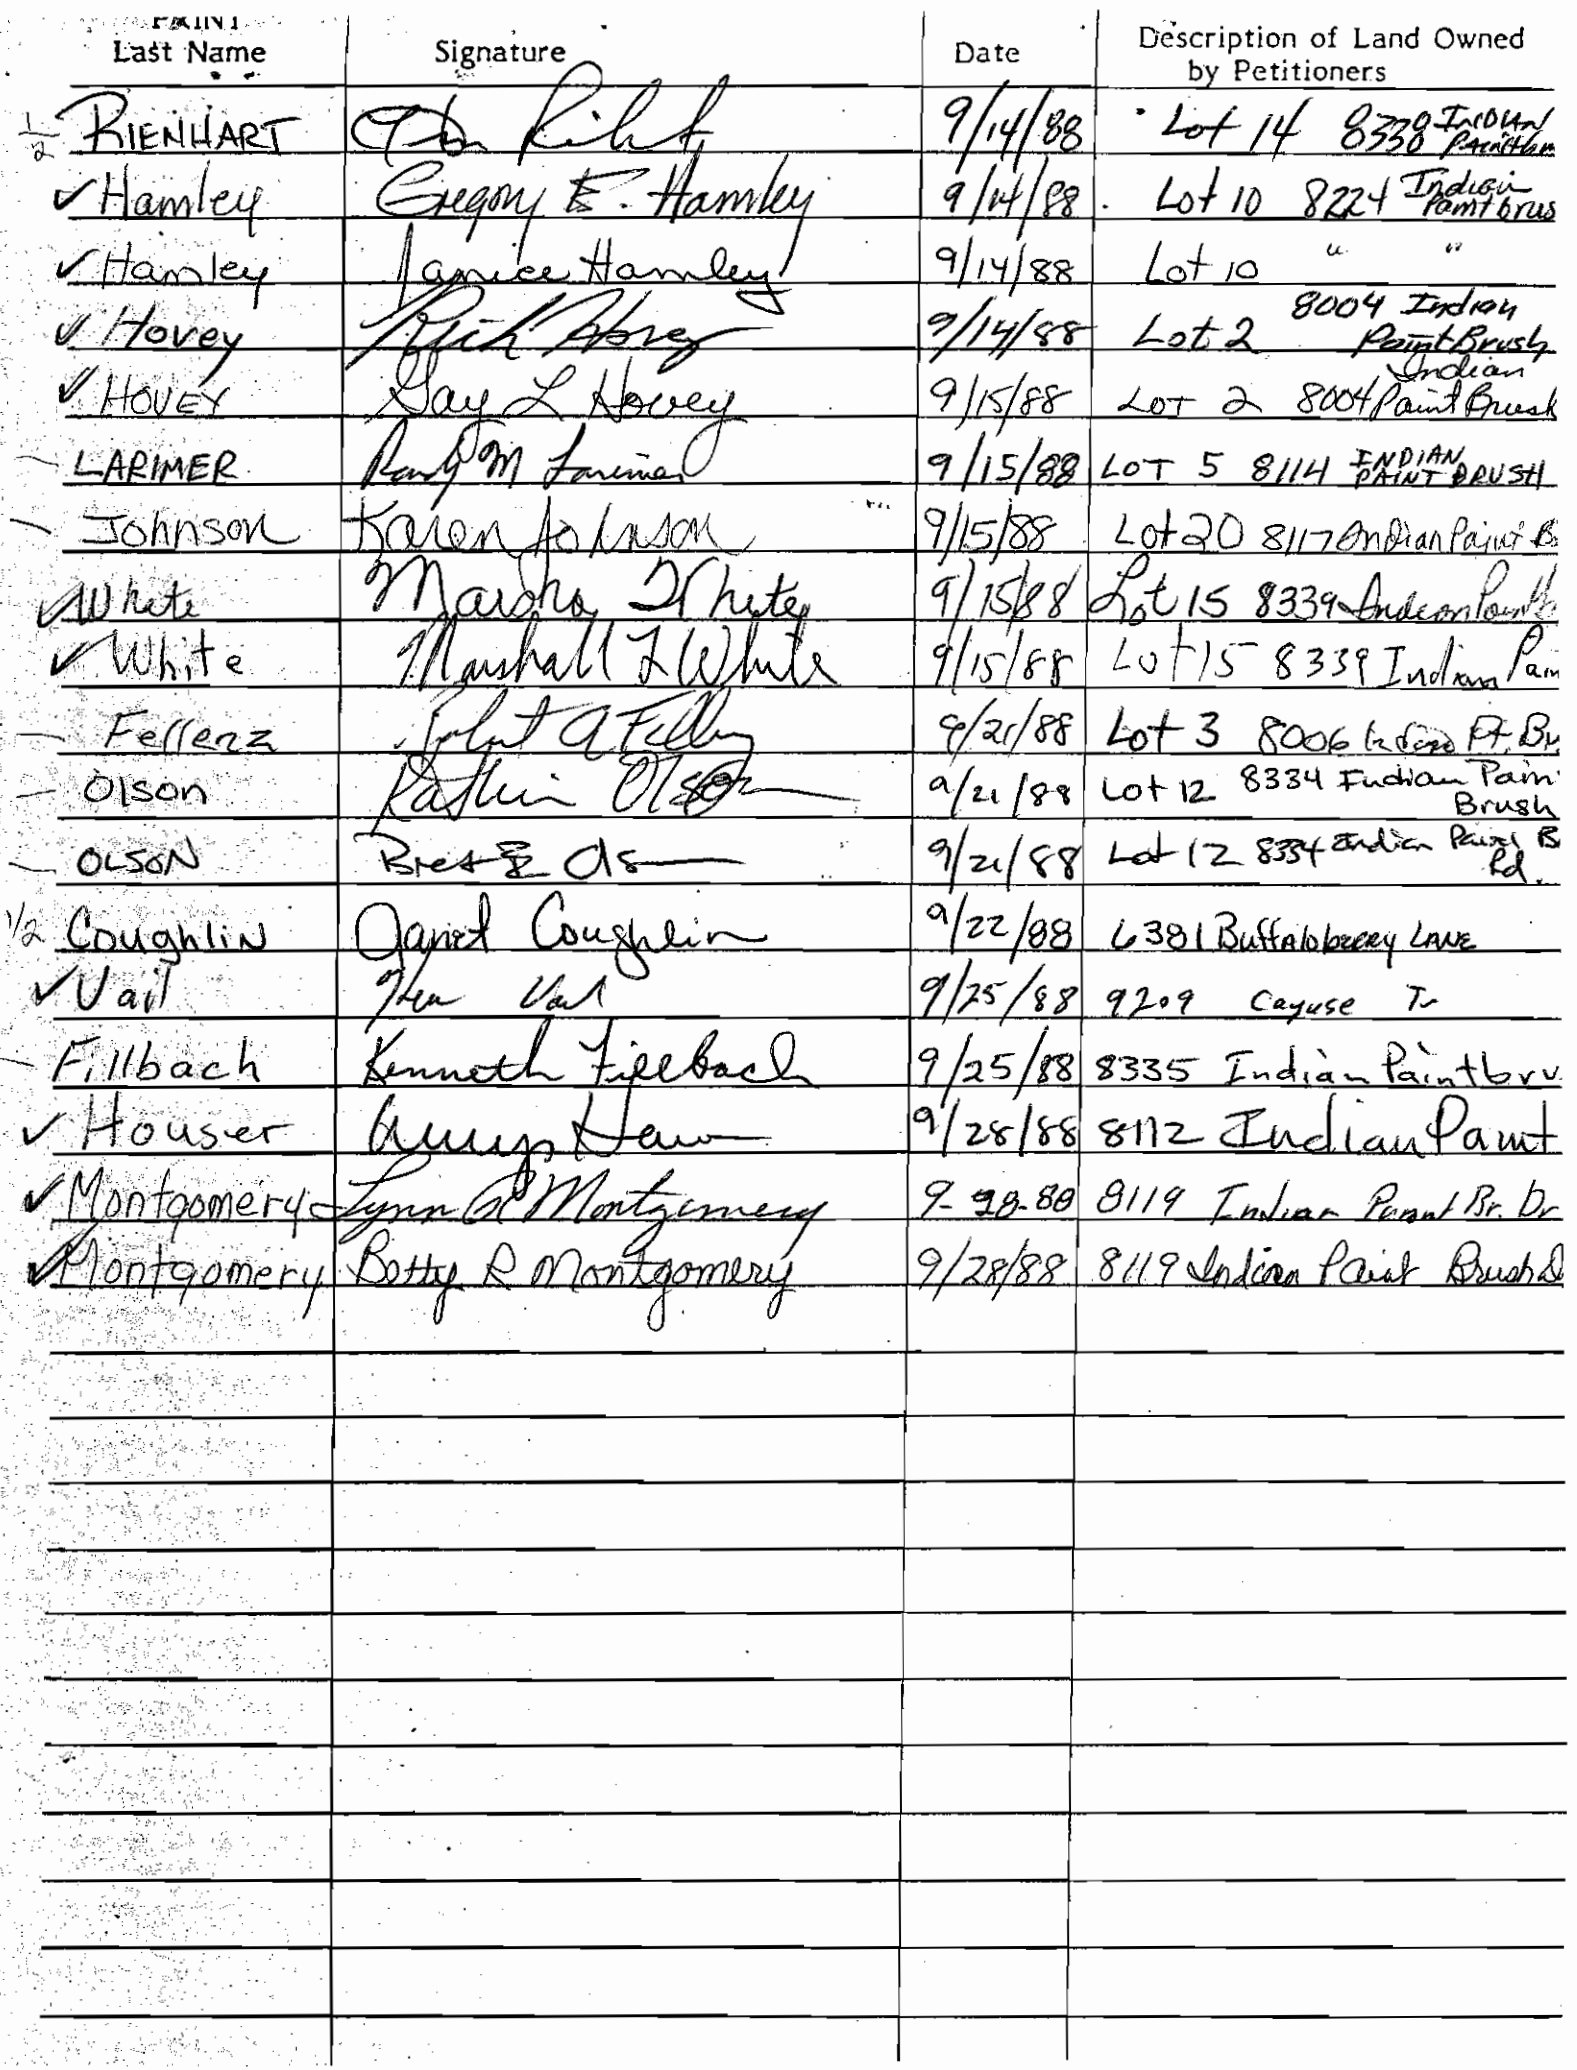 PRINT
Last Name Signature Date Description of Land Owned
by Petitioners
1/2 RIENHART 9/14/88 Lot 14 8338 INDIAN
✓ Hamley Gregory E. Hamley 9/14/88 Lot 10 8224 Indian
Paintbrus
✓ Hamley Janice Hamley 9/14/88 Lot 10 " "
✓ Hovey Rick Hovey 9/14/88 Lot 2 8004 Indian
Paint Brush
✓ HOVEY Gay L Hovey 9/15/88 LOT 2 8004 Indian
Paint Brush
— LARIMER Randy M Larimer 9/15/88 LOT 5 8114 INDIAN
PAINT BRUSH
— Johnson Karen Johnson 9/15/88 Lot 20 8117 Indian Paint B
✓ White Marsha White 9/15/88 Lot 15 8339 Indian Paintb
✓ White Marshall L White 9/15/88 Lot 15 8339 Indian Pain
— Fellenz Robert A 9/21/88 Lot 3 8006 Indian Pt. Br
— Olson Kathin Olson 9/21/88 Lot 12 8334 Indian Pain
Brush
— OLSON Bret 9/21/88 Lot 12 8334 Indian Paint B
Rd.
1/2 Coughlin Janet Coughlin 9/22/88 6381 Buffaloberry LANE
✓ Vail Ken Vail 9/25/88 9209 Cayuse Tr
— Fillbach Kenneth Fillbach 9/25/88 8335 Indian Paintbru
✓ Houser 9/28/88 8112 Indian Paint
✓ Montgomery Lynn Montgomery 9-28-88 8119 Indian Paint Br. Dr
✓ Montgomery Betty R Montgomery 9/28/88 8119 Indian Paint Brush D